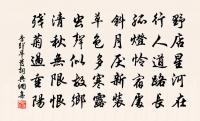 野店星河在
行人道路長
孤燈憐宿處
斜月厭新裝
草色多寒露
蟲聲似故鄉
清秋無限恨
殘菊過重陽
李郢早發詞典網